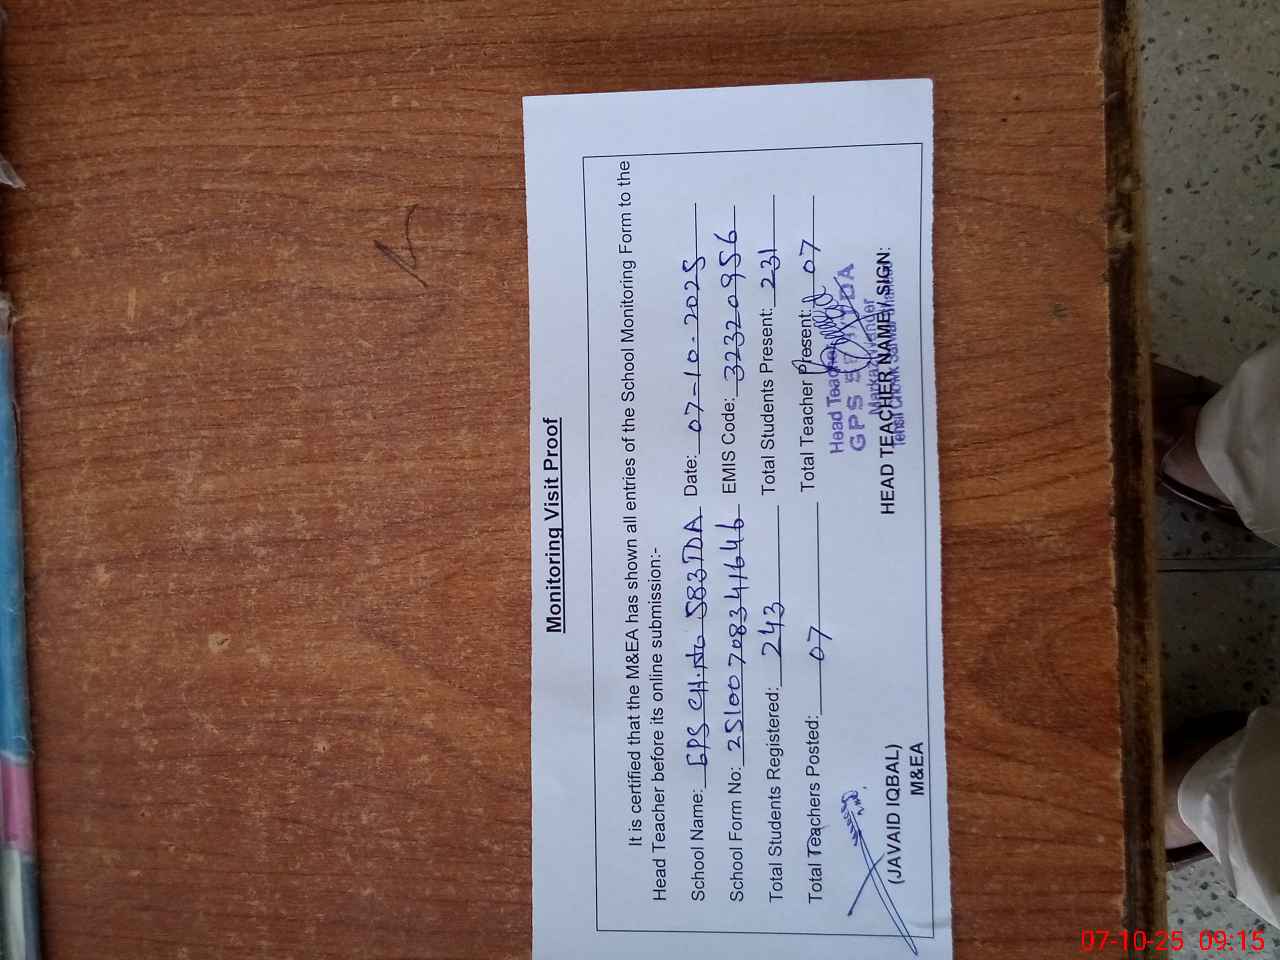 Monitoring Visit Proof
It is certified that the M&EA has shown all entries of the School Monitoring Form to the
Head Teacher before its online submission:-
School Name: GPS CH.No 583TDA Date: 07-10-2025
School Form No: 25100708341646 EMIS Code: 32320956
Total Students Registered: 243 Total Students Present: 231
Total Teachers Posted: 07 Total Teacher Present: 07
Head Teacher
GPS 583 TDA
Markaz
Tehsil Chowk
(JAVAID IQBAL) HEAD TEACHER NAME / SIGN:
M&EA
07-10-25 09:15